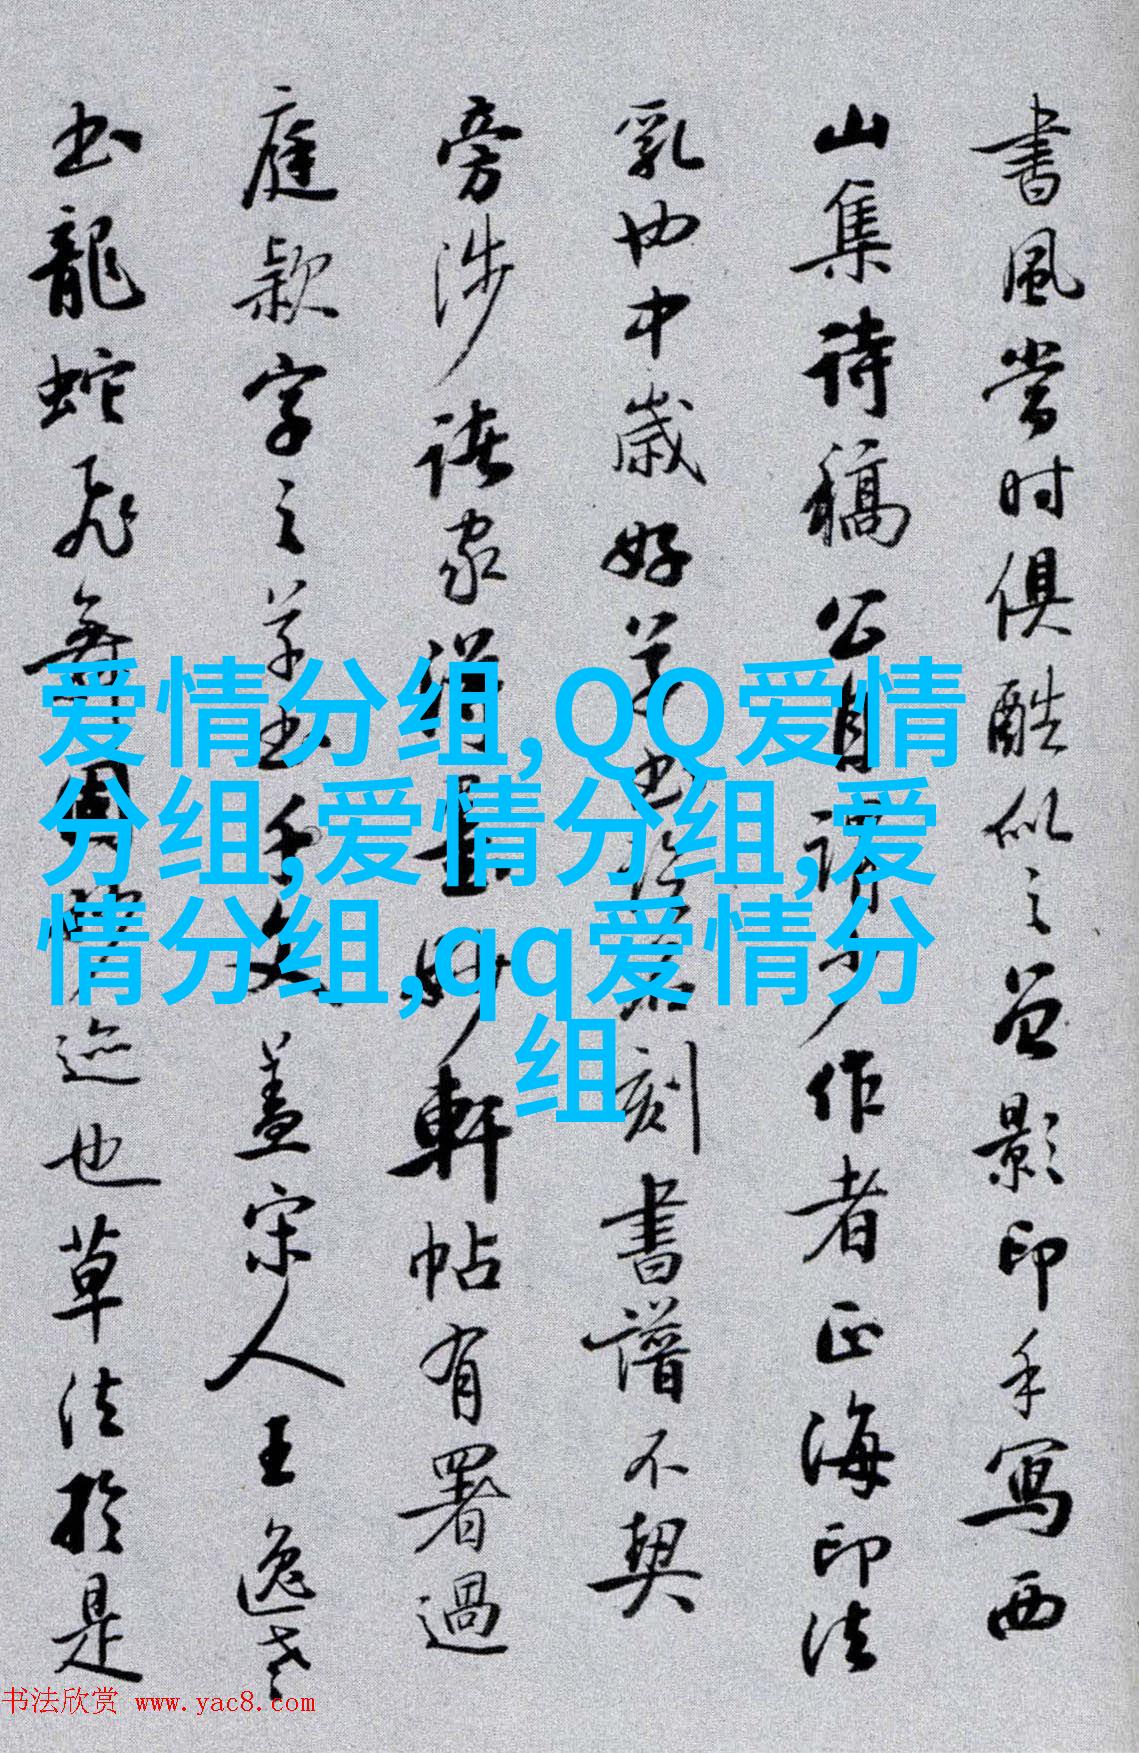 書風嘗时俱酷似之曾影印手写西
山集詩稿公自謂少作者正海印法
乳也中歲好草书
刻書譜不契
旁涉诸家
妙軒帖有署過
庭款字之草书千文蓋宋人王逸老
书龍蛇飛舞
迹也草法於是
爱情分组,QQ爱情
分组,爱情分组,爱
情分组,qq爱情分
组
书法欣赏 www.yac8.com